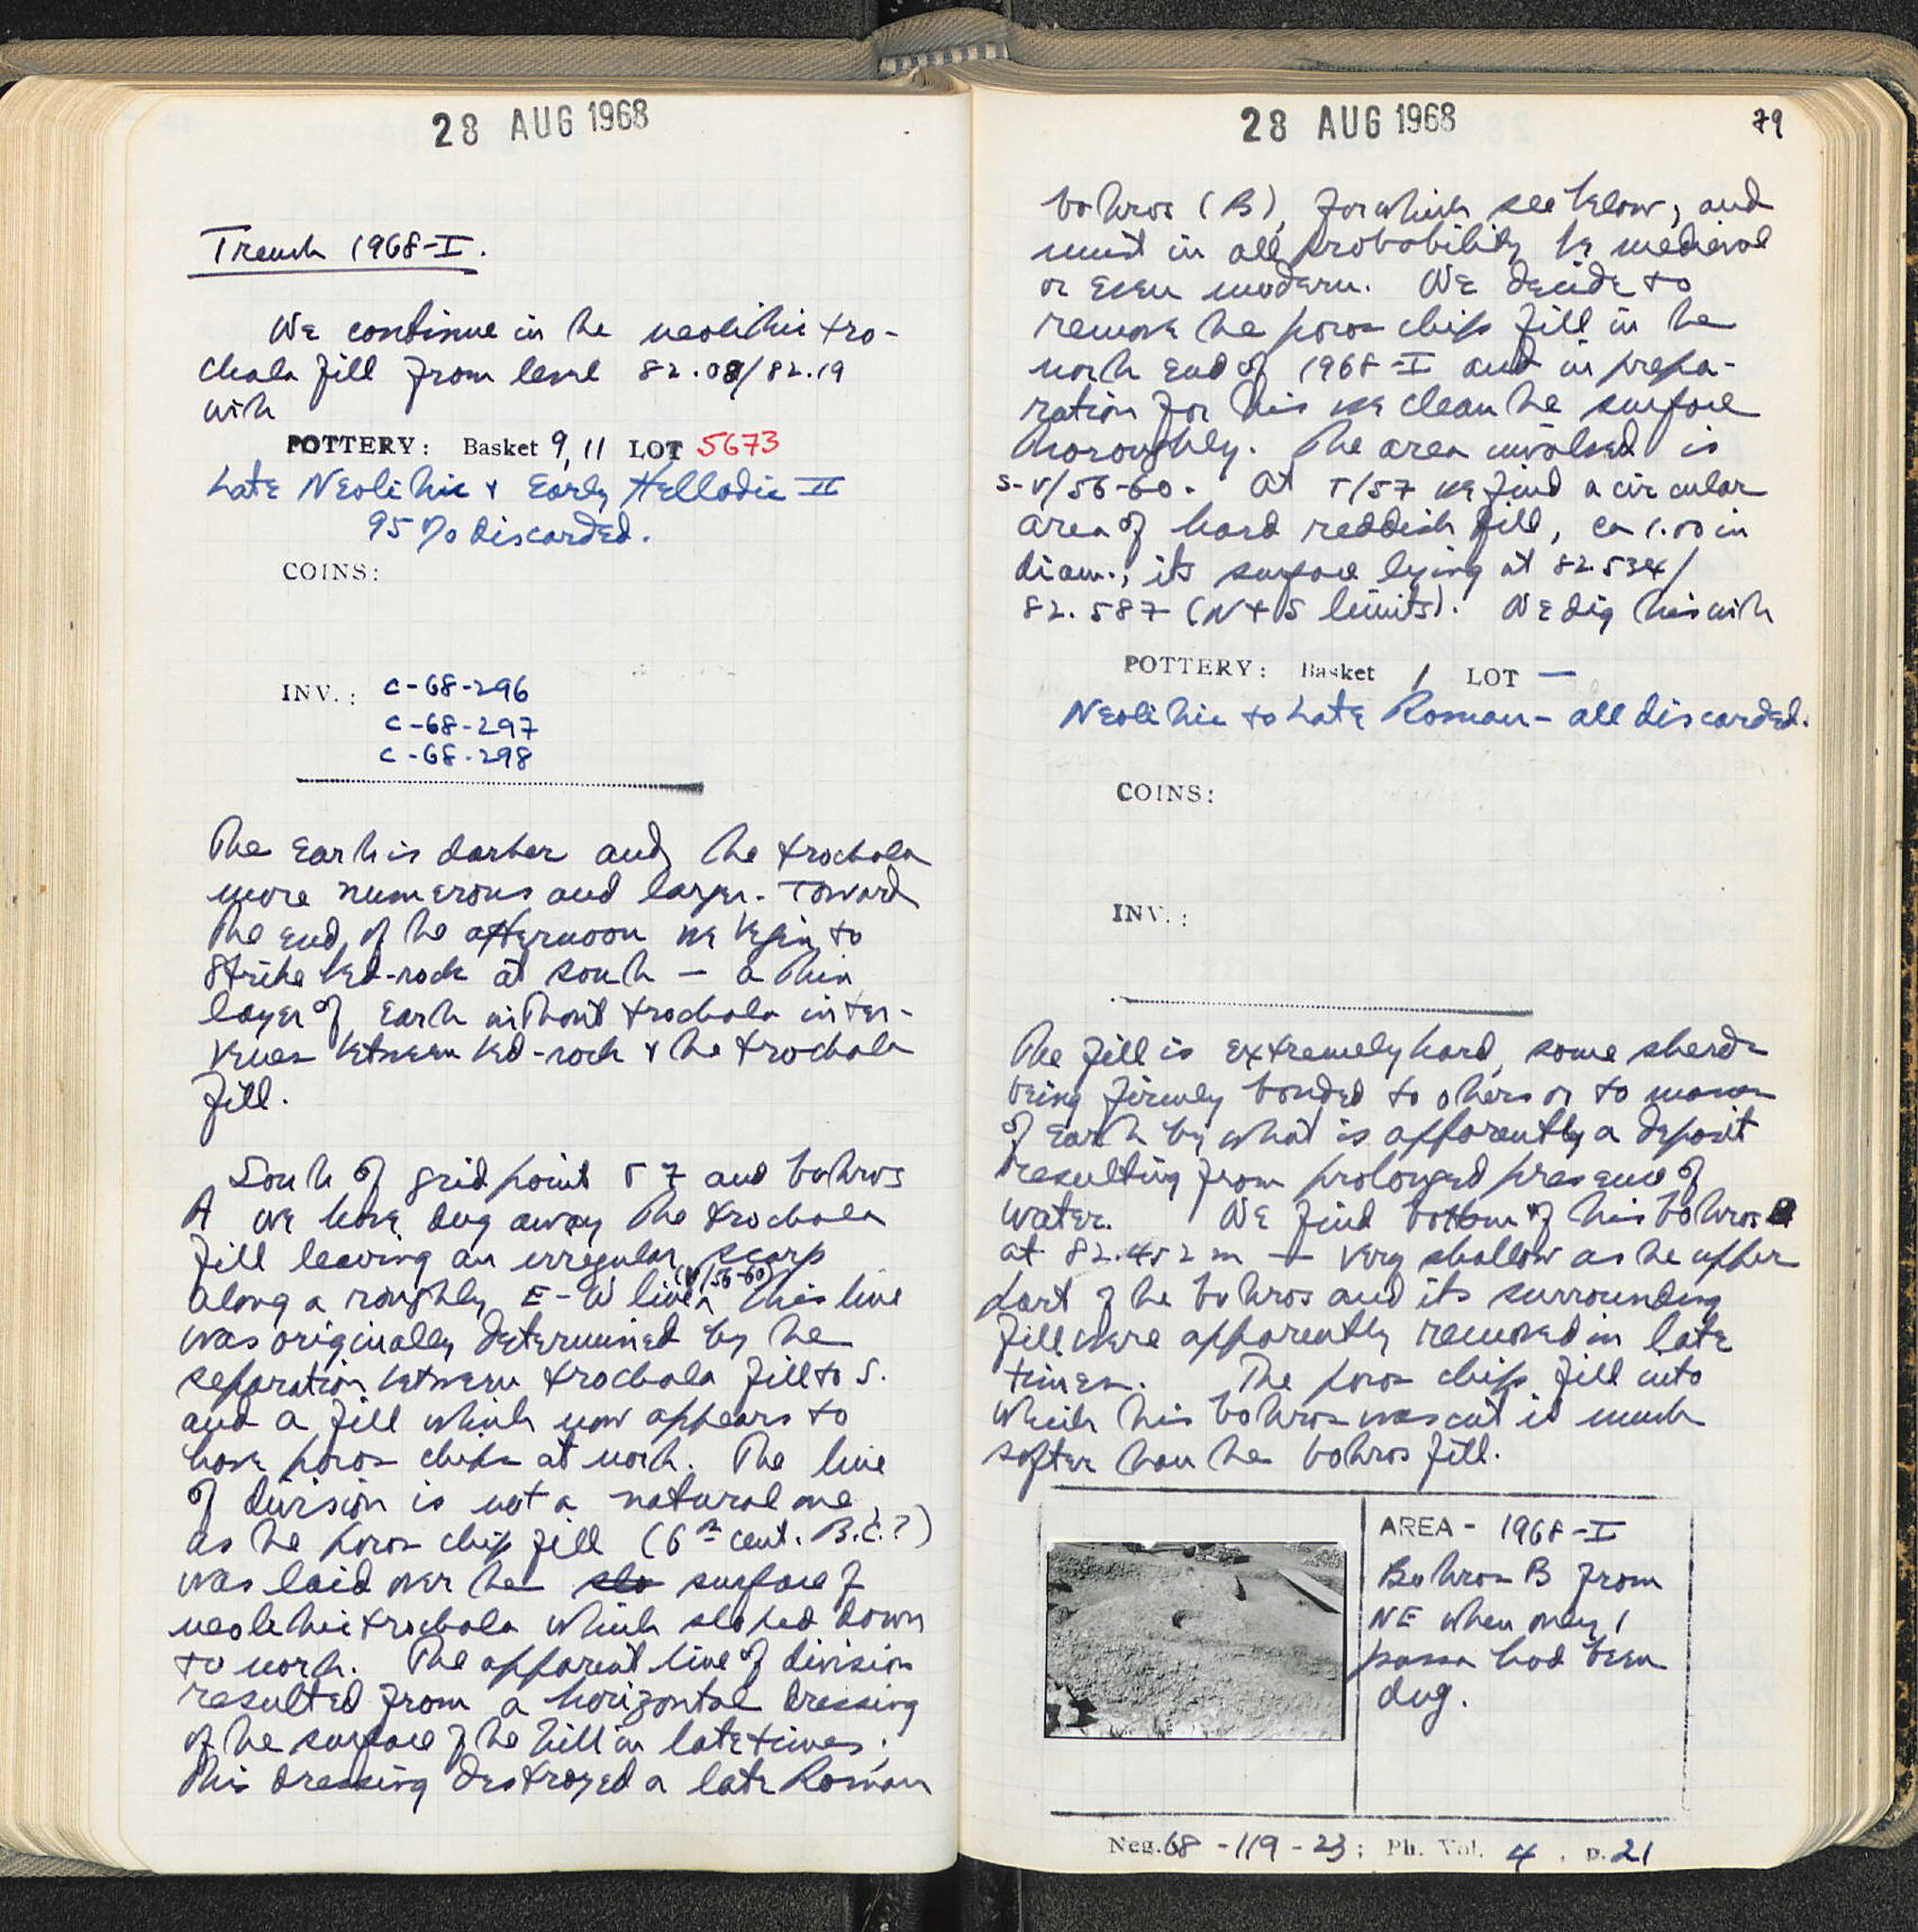 28 AUG 1968
Trench 1968-I.
We continue in the neolithic tro-
chala fill from level 82.08/82.19
with
POTTERY: Basket 9, 11 LOT 5673
Late Neolithic + Early Helladic II
95% discarded.
COINS:
INV.: C-68-296
C-68-297
C-68-298
The earth is darker and the trochala
more numerous and larger. Toward
the end of the afternoon we begin to
strike bed-rock at south — a thin
layer of earth without trochala inter-
venes between bed-rock + the trochala
fill.
South of grid point 57 and bothros
A we have dug away the trochala
fill leaving an irregular scarp
along a roughly E-W line (V/56-60). This line
was originally determined by the
separation between trochala fill to S.
and a fill which now appears to
have poros chips at north. The line
of division is not a natural one,
as the poros chip fill (6th cent. B.C.?)
was laid over the slo surface of
neolithic trochala which sloped down
to north. The apparent line of division
resulted from a horizontal dressing
of the surface of the hill in late times;
this dressing destroyed a late Roman
28 AUG 1968
79
bothros (B), for which see below, and
must in all probability be medieval
or even modern. We decide to
remove the poros chip fill in the
north end of 1968-I and in prepa-
ration for this we clean the surface
thoroughly. The area involved is
S-V/56-60. At T/57 we find a circular
area of hard reddish fill, ca 1.00 in
diam., its surface lying at 82.534/
82.587 (N + S limits). We dig this with
POTTERY: Basket 1 LOT —
Neolithic to Late Roman - all discarded.
COINS:
INV.:
The fill is extremely hard, some sherds
being firmly bonded to others or to masses
of earth by what is apparently a deposit
resulting from prolonged presence of
water. We find bottom of this bothros
at 82.452 m — very shallow as the upper
part of the bothros and its surrounding
fill were apparently removed in late
times. The poros chip fill into
which this bothros was cut is much
softer than the bothros fill.
AREA - 1968-I
Bothros B from
NE when only 1
passa had been
dug.
Neg. 68 - 119 - 23; Ph. Vol. 4, p. 21